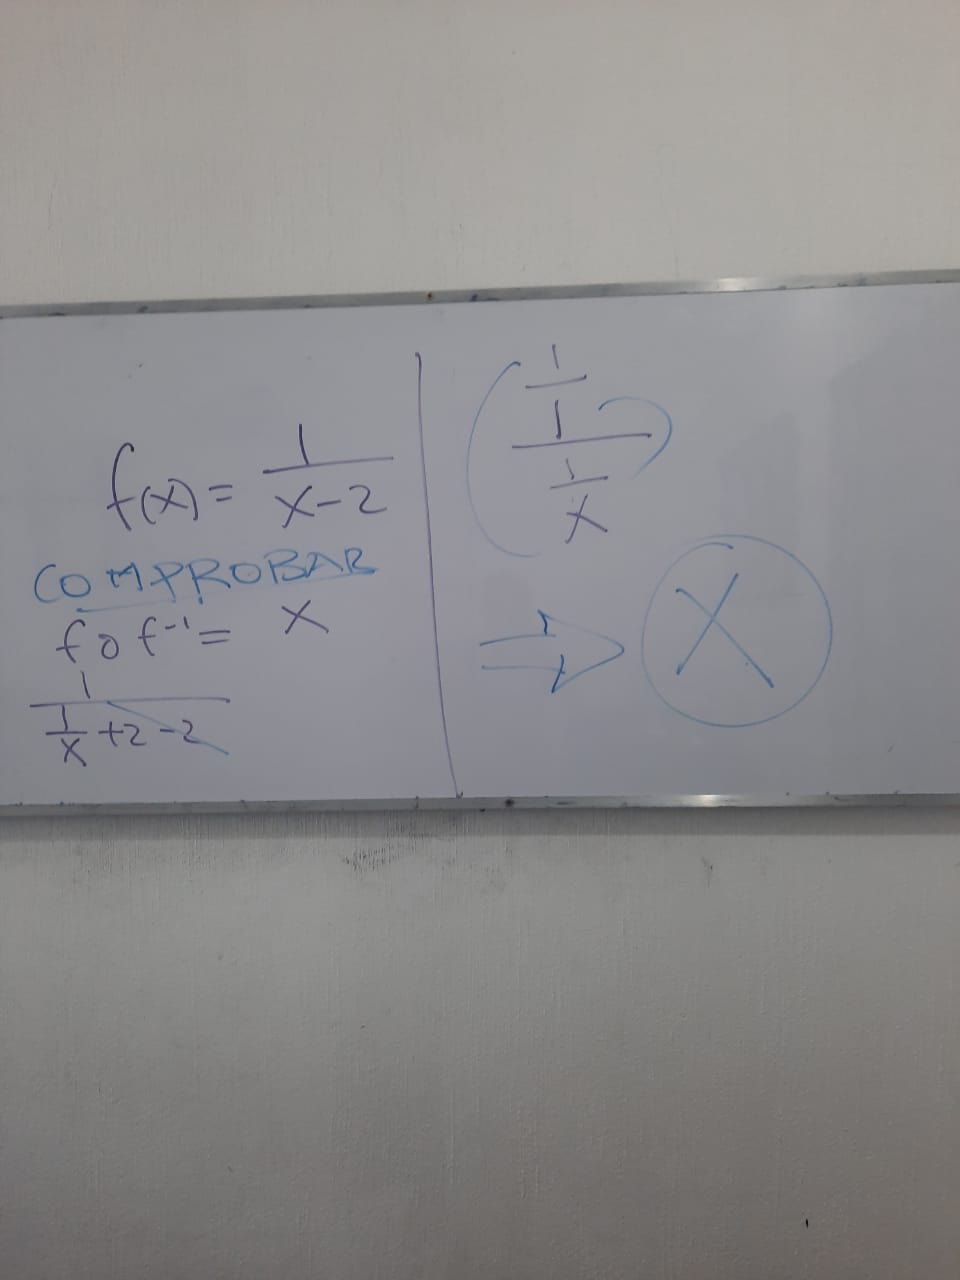 f(x) = 1/(x-2)
COMPROBAR
f o f⁻¹ = x
1/(1/x +2-2)
(1/1)/(1/x)
⇒ X